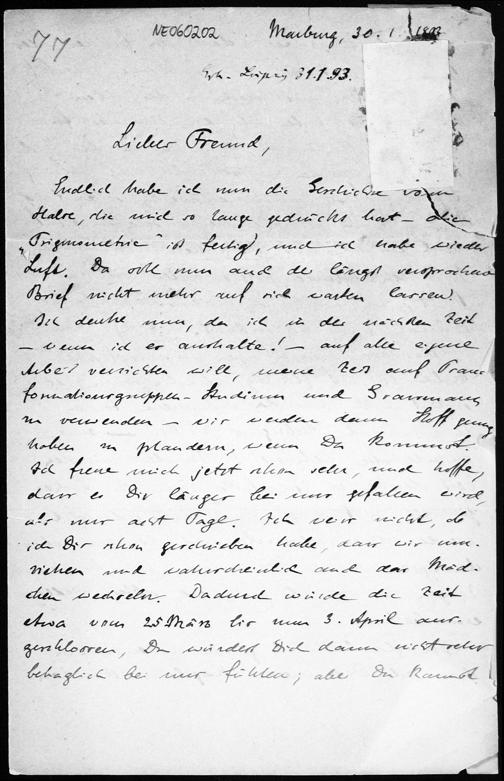 77
NE060202
Marburg, 30. 1. 1893
Erh. Leipzig 31.1.93.
Lieber Freund,
Endlich habe ich nun die Geschichte vom
Halse, die mich so lange gedrückt hat – die
„Trigonometrie" ist fertig, und ich habe wieder
Luft. Da soll nun auch der längst versprochene
Brief nicht mehr auf sich warten lassen.
Ich denke nun, da ich in der nächsten Zeit
– wenn ich es aushalte! – auf alle eigene
Arbeit verzichten will, meine Zeit auf Trans-
formationsgruppen-Studium und Grassmann
zu verwenden – wir werden dann Stoff genug
haben zu plaudern, wenn Du kommst.
Ich freue mich jetzt schon sehr, und hoffe,
dass es Dir länger bei mir gefallen wird,
als nur acht Tage. Ich weiss nicht, ob
ich Dir schon geschrieben habe, dass wir um-
ziehen und wahrscheinlich auch das Mäd-
chen wechseln. Dadurch würde die Zeit
etwa vom 25 März bis zum 3. April aus-
geschlossen, Du würdest Dich dann nicht sehr
behaglich bei mir fühlen; aber Du kannst